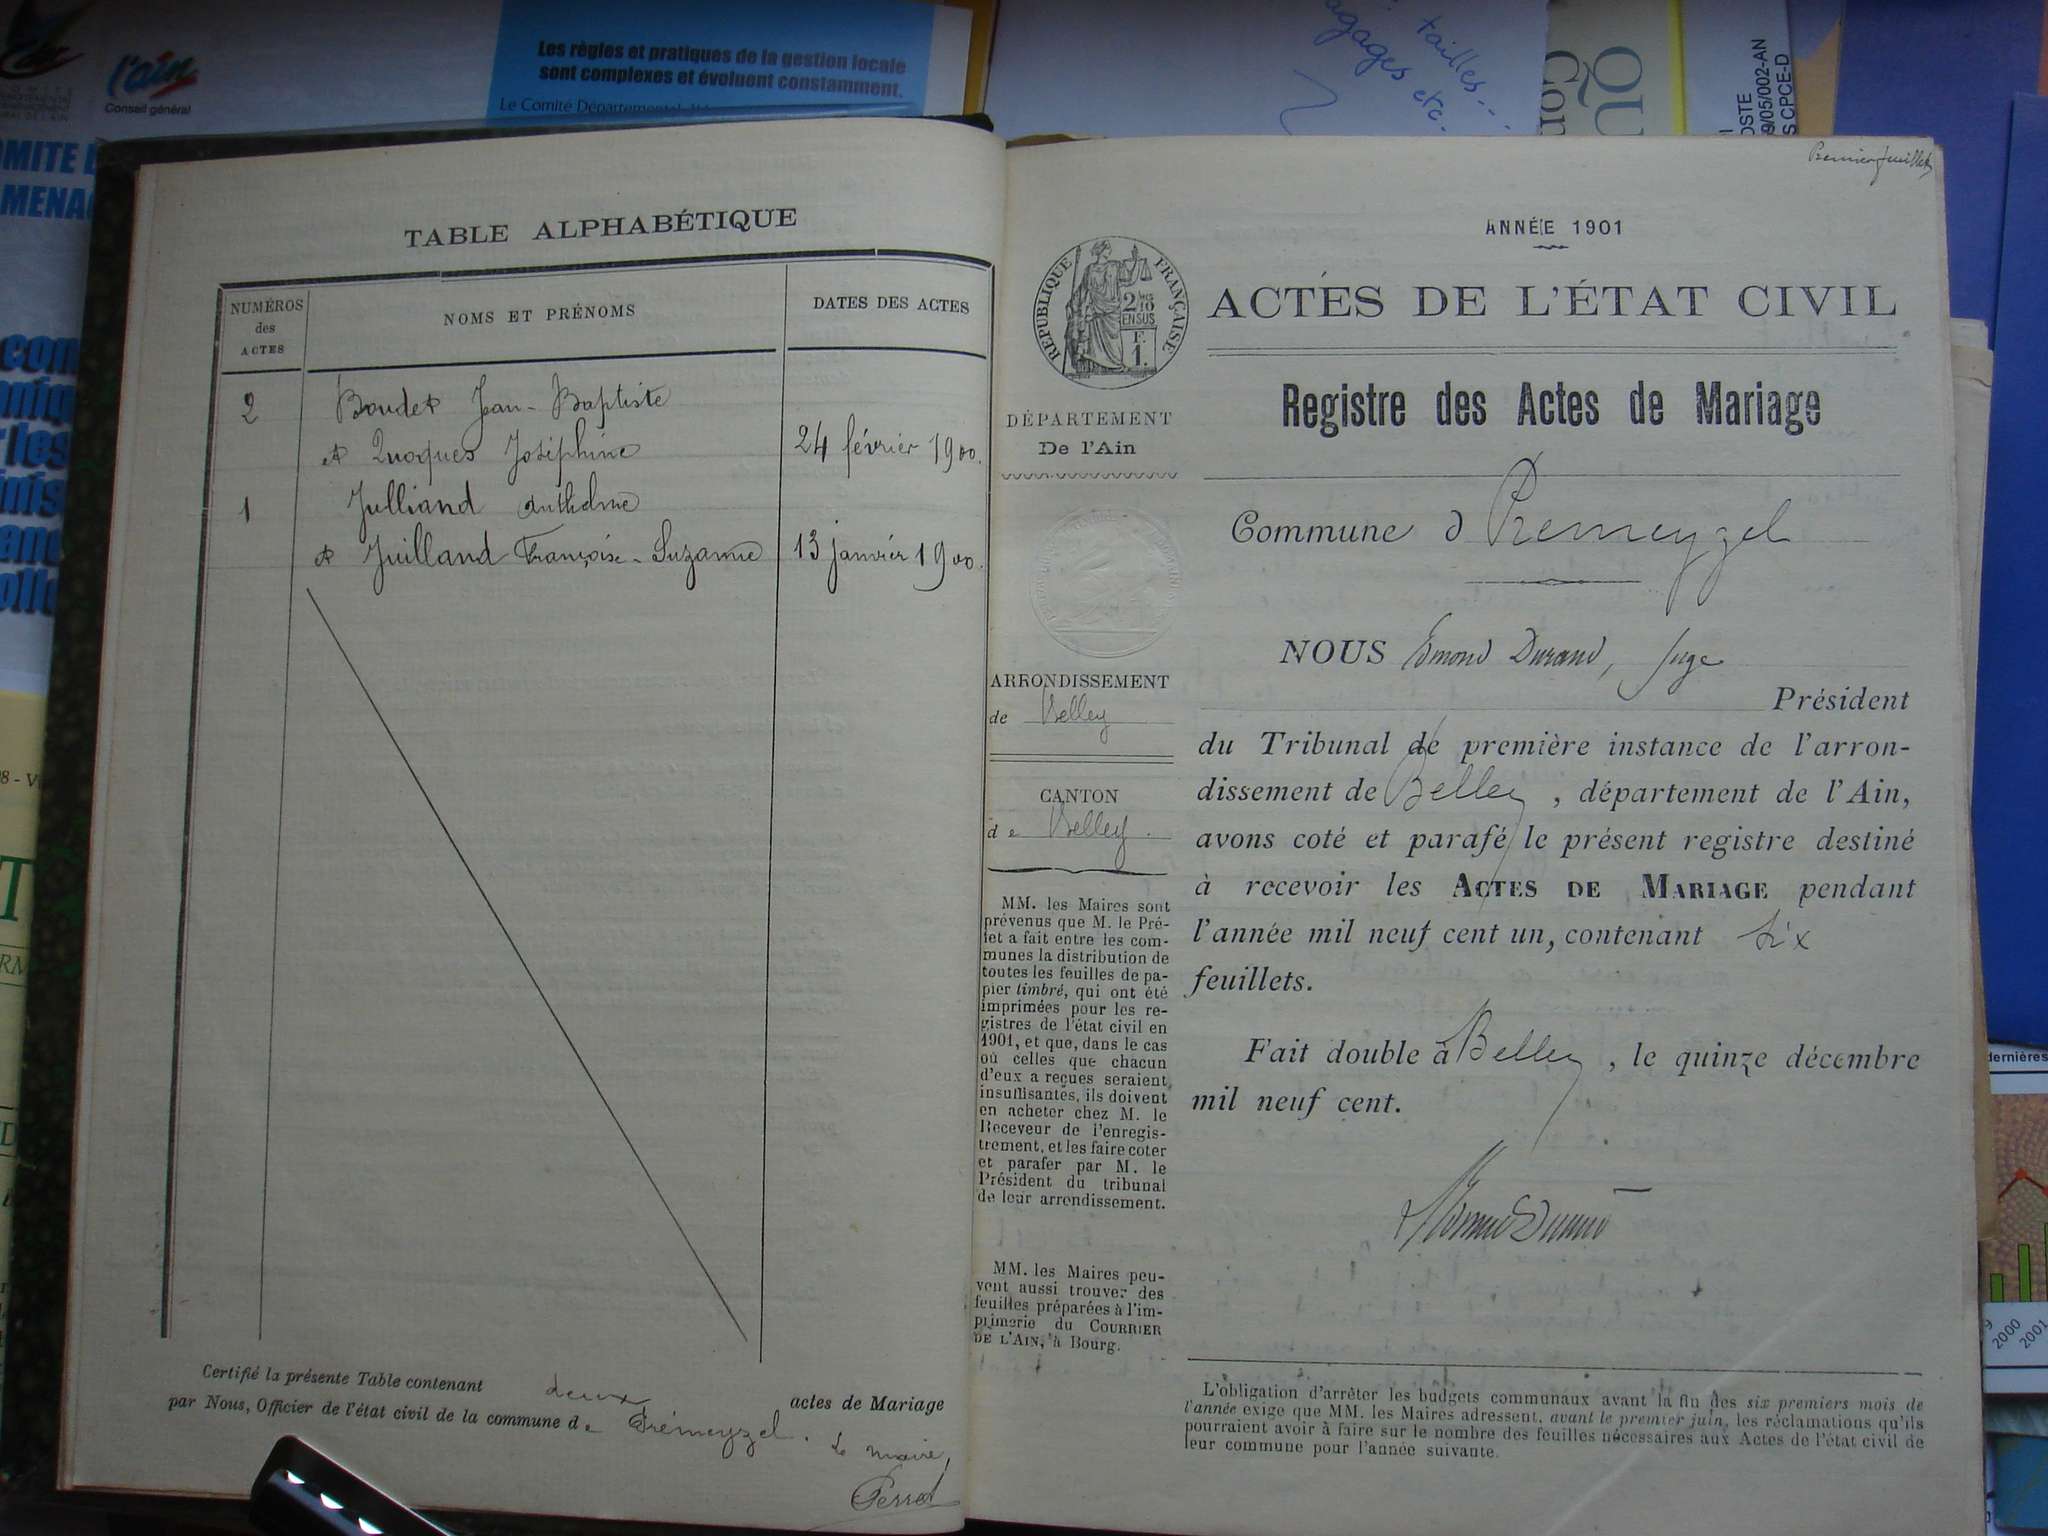 l'ain
Conseil général
Les règles et pratiques de la gestion locale
sont complexes et évoluent constamment.
Le Comité Départemental
tailles...
agages etc.
TABLE ALPHABÉTIQUE
NUMÉROS
des
ACTES
NOMS ET PRÉNOMS
DATES DES ACTES
2 Boudet Jean-Baptiste
et Josephine 24 février 1900.
1 Julliand Anthelme
et Juilland Françoise-Suzanne 13 janvier 1900.
Certifié la présente Table contenant deux actes de Mariage
par Nous, Officier de l'état civil de la commune de Prémeyzel. Le maire,
Perret
Premier feuillet
ANNÉE 1901
ACTES DE L'ÉTAT CIVIL
RÉPUBLIQUE FRANÇAISE
2/10
EN SUS
F.
1.
DÉPARTEMENT
De l'Ain
ARRONDISSEMENT
de Belley
CANTON
de Belley.
MM. les Maires sont
prévenus que M. le Pré-
fet a fait entre les com-
munes la distribution de
toutes les feuilles de pa-
pier timbré, qui ont été
imprimées pour les re-
gistres de l'état civil en
1901, et que, dans le cas
où celles que chacun
d'eux a reçues seraient
insuffisantes, ils doivent
en acheter chez M. le
Receveur de l'enregis-
trement, et les faire coter
et parafer par M. le
Président du tribunal
de leur arrondissement.
MM. les Maires peu-
vent aussi trouver des
feuilles préparées à l'im-
primerie du COURRIER
DE L'AIN, à Bourg.
Registre des Actes de Mariage
Commune d Premeyzel
NOUS Edmond Durand, Juge
Président
du Tribunal de première instance de l'arron-
dissement de Belley, département de l'Ain,
avons coté et parafé le présent registre destiné
à recevoir les ACTES DE MARIAGE pendant
l'année mil neuf cent un, contenant six
feuillets.
Fait double à Belley, le quinze décembre
mil neuf cent.
L'obligation d'arrêter les budgets communaux avant la fin des six premiers mois de
l'année exige que MM. les Maires adressent, avant le premier juin, les réclamations qu'ils
pourraient avoir à faire sur le nombre des feuilles nécessaires aux Actes de l'état civil de
leur commune pour l'année suivante.
09/05/002-AN
CPCE-D
dernières
2000
2001